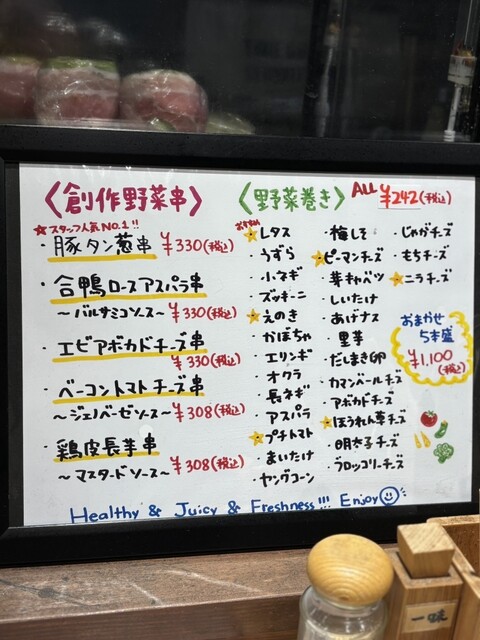 〈創作野菜串〉
★スタッフ人気NO.1!!
・豚タン葱串 ¥330(税込)
・合鴨ロースアスパラ串
〜バルサミコソース〜 ¥330(税込)
・エビアボカドチーズ串
¥330(税込)
・ベーコントマトチーズ串
〜ジェノベーゼソース〜 ¥308(税込)
・鶏皮長芋串
〜マスタードソース〜 ¥308(税込)
〈野菜巻き〉 ALL ¥242(税込)
おすすめ
★レタス
・うずら
・小ネギ
・ズッキーニ
★えのき
・かぼちゃ
・エリンギ
・オクラ
・長ネギ
・アスパラ
★プチトマト
・まいたけ
・ヤングコーン
・梅しそ
★ピーマンチーズ
・芽キャベツ
・しいたけ
・あげナス
・里芋
・だしまき卵
・カマンベールチーズ
・アボカドチーズ
★ほうれん草チーズ
・明太子チーズ
・ブロッコリーチーズ
・じゃがチーズ
・もちチーズ
★ニラチーズ
おまかせ
5本盛
¥1,100
(税込)
Healthy & Juicy & Freshness!!! Enjoy
一味